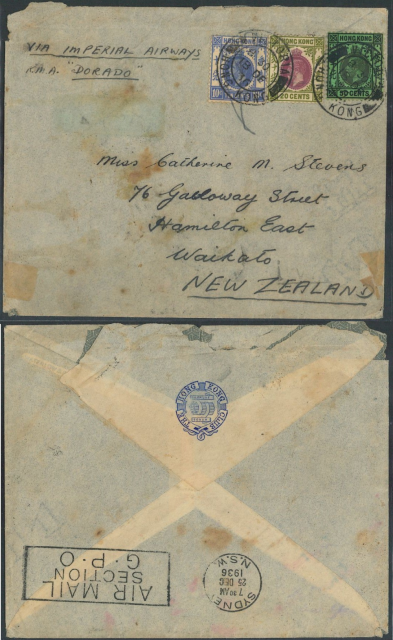 VIA IMPERIAL AIRWAYS
R.M.A. "DORADO"
HONG KONG
10
HONG KONG
20 CENTS
HONG KONG
50 CENTS
KONG
KONG
Miss Catherine M. Stevens
76 Galloway Street
Hamilton East
Waikato
NEW ZEALAND
THE HONG KONG CLUB
AIR MAIL
SECTION
G.P.O
SYDNEY
7 30 AM
25 DEC
1936
N.S.W.